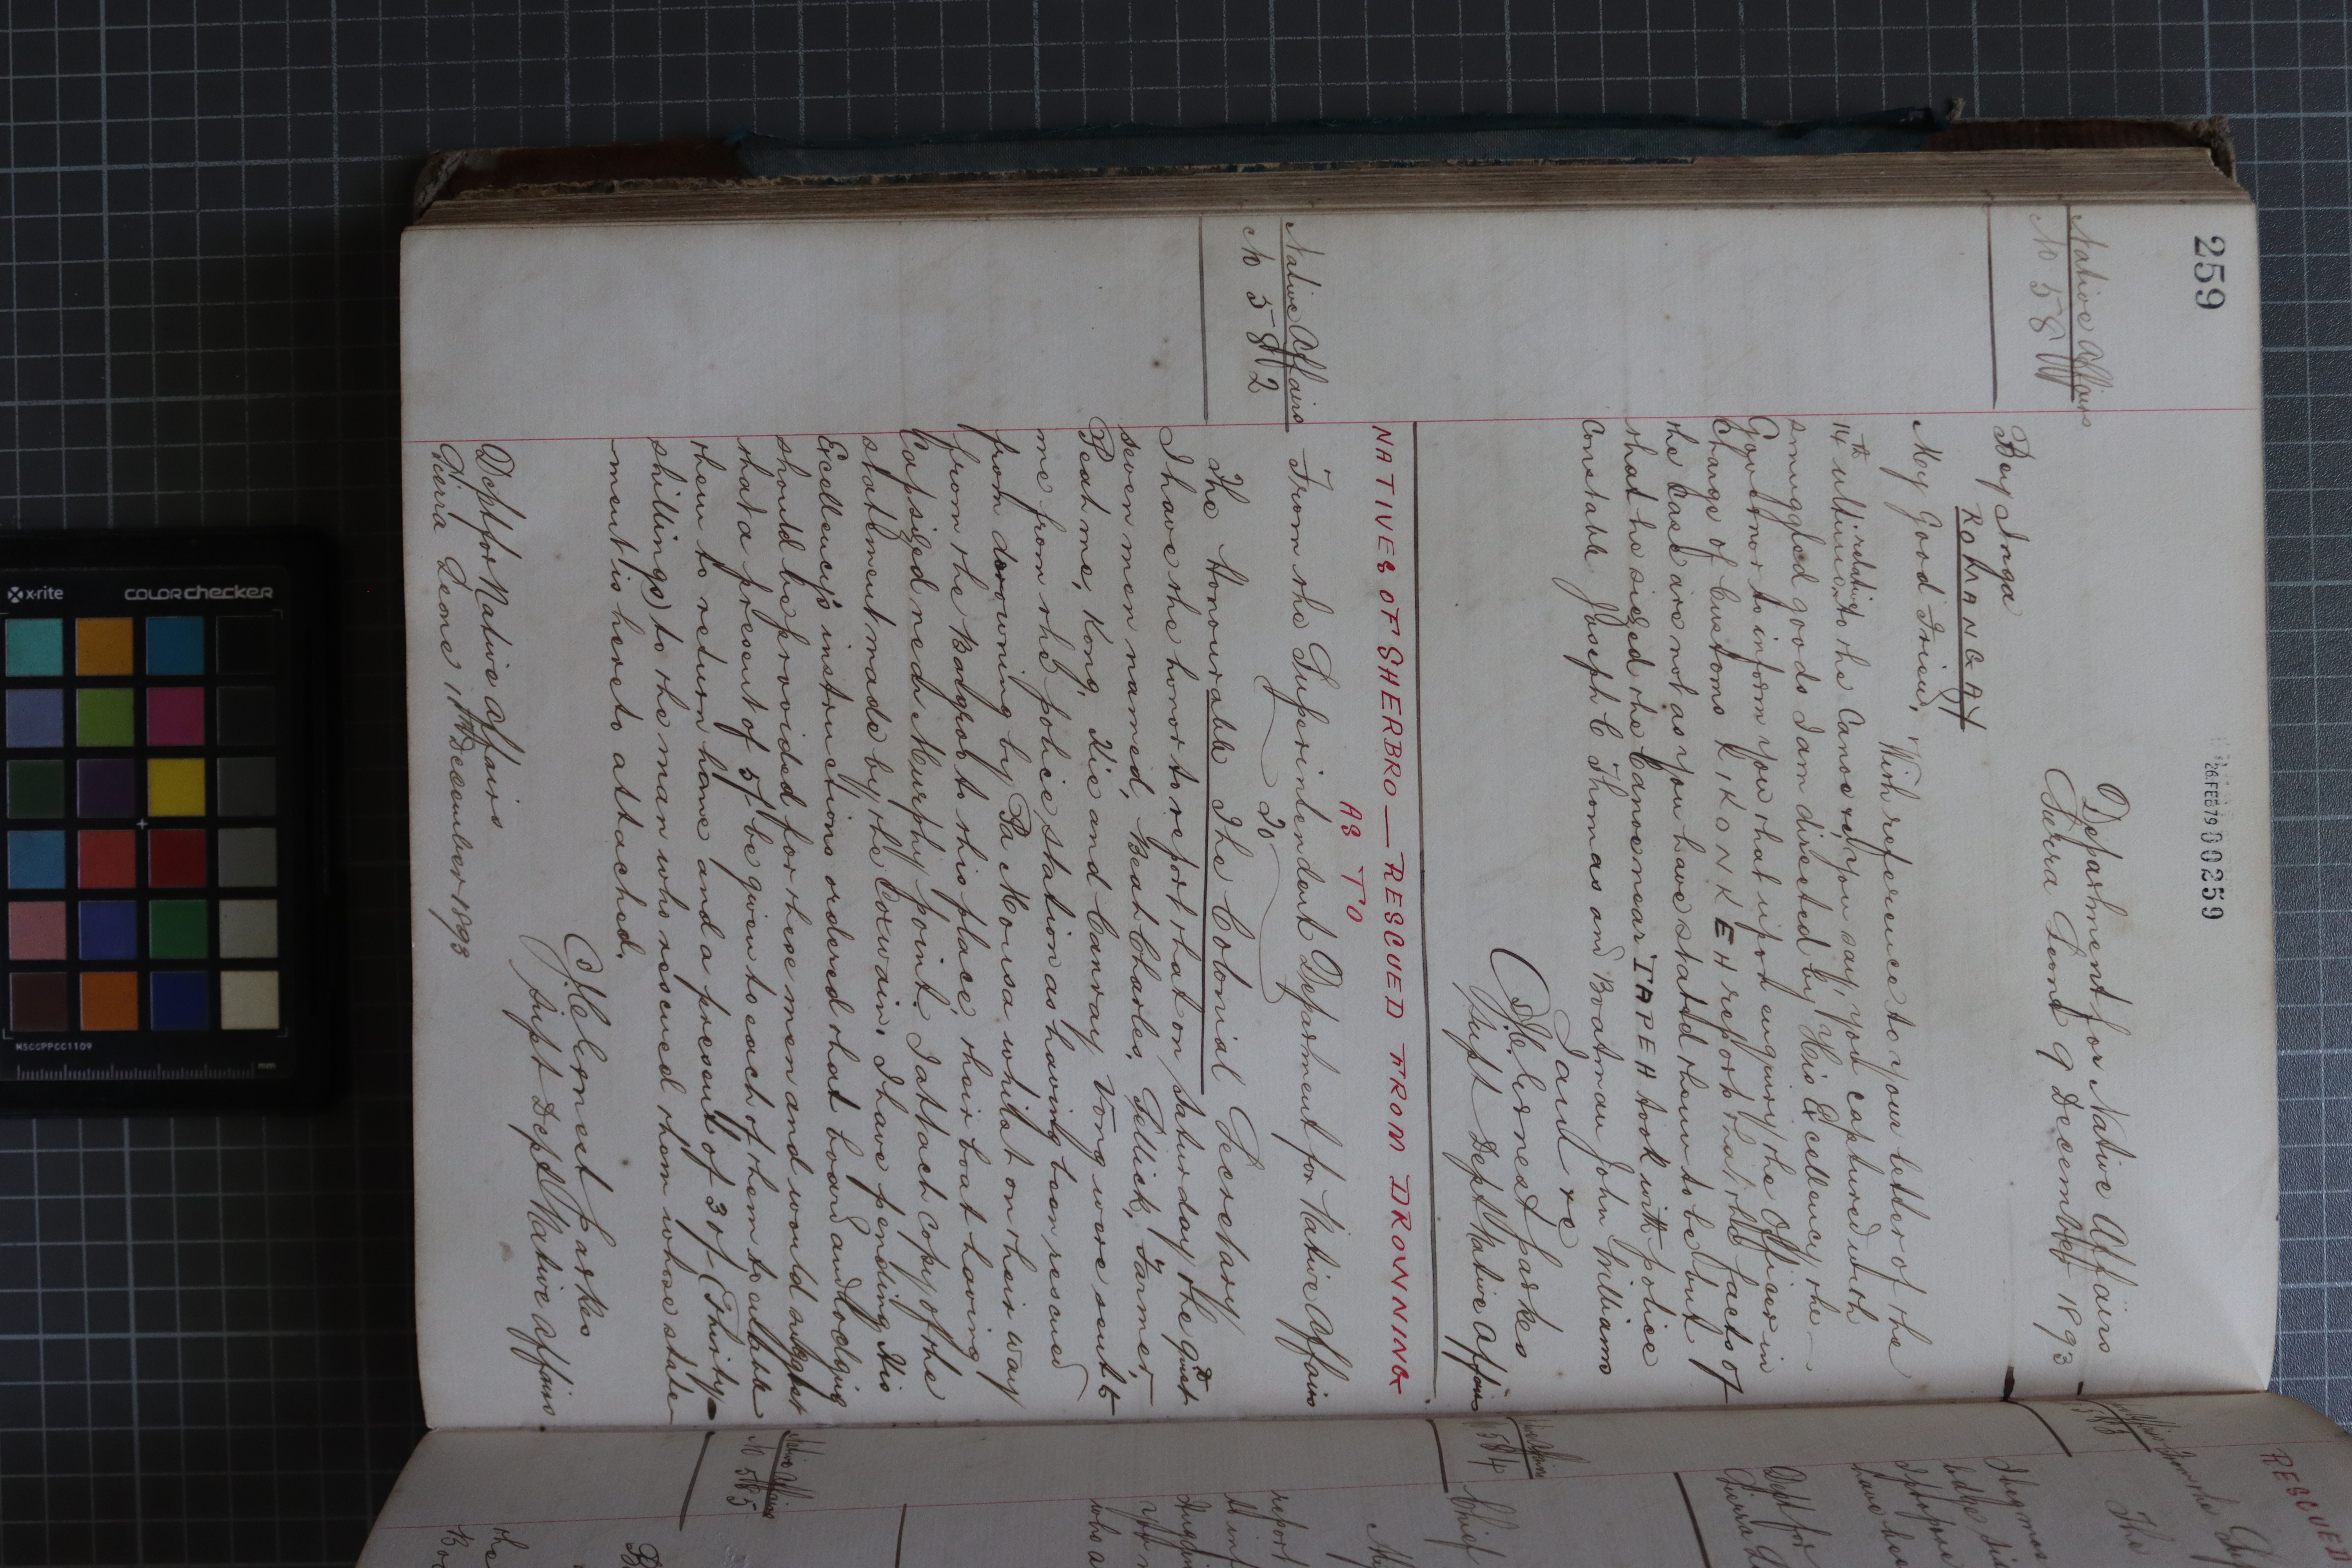 259
26 FEB 79 00259
Native Affairs
No 581
Department for Native Affairs
Sierra Leone 9 December 1893
Bey Inga
ROHANGAY
My Good Friend,
With reference to your letter of the
14th ultimo relative to the Canoe you say, you captured with
smuggled goods I am directed by His Excellency the
Governor to inform you that upon enquiry the Officer in
Charge of Customs KIKONKEH reports that the facts of
the case are not as you have stated them to be but
that he siezed the Canoe near TAPEH took with police
Constable Joseph C Thomas and Boatman John Williams
I am &c
J C Ernest Parkes
Supt Dept Native Affairs
NATIVES OF SHERBRO — RESCUED FROM DROWNING
AS TO
Native Affairs
No 582
From the Superintendent Department for Native Affairs
To
The Honourable The Colonial Secretary
I have the honor to report that on Saturday the 9th inst
seven men named, Beah Charles, Pellick, Farmer,
Beah me, Kong, Kie and Canray Vong were sent to
me from the police station as having been rescued
from drowning by Pa Mousa whilst on their way
from the Bargroo to this place, their boat having
Capsized near Murphy point. I attach copy of the
statement made by the Coxwain. I have pending His
Excellency's instructions ordered that board and lodging
should be provided for these men and would suggest
that a present of 5/ be given to each of them to enable
them to return home and a present of 30/ (Thirty
shillings) to the man who rescued them whose state-
-ment is hereto attached.
J C Ernest Parkes
Supt Dept Native Affairs.
Dept for Native Affairs
Sierra Leone 11th December 1893
RESCUED
The
583
have
Dept for
Sierra
No 584
Chief
My
report
who a
Native Affairs
No 585
the